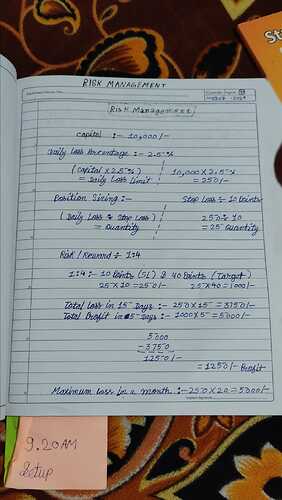 RISK MANAGEMENT
Risk Management
Capital :- 10,000/-
Daily Loss Percentage :- 2.5%
(Capital × 2.5%) 10,000 × 2.5%
= Daily Loss Limit = 250/-
Position Sizing :- Stop Loss :- 10 Points
(Daily Loss ÷ Stop Loss) 250 ÷ 10
= Quantity = 25 Quantity
Risk / Reward :- 1:4
1:4 :- 10 Points (SL) & 40 Points (Target)
25 × 10 = 250/- 25 × 40 = 1000/-
Total Loss in 15 Days :- 250 × 15 = 3750/-
Total Profit in 5 Days :- 1000 × 5 = 5000/-
5000
- 3750
1250/-
= 1250/- Profit
Maximum Loss in a month :- 250 × 20 = 5000/-
9.20 AM
Setup